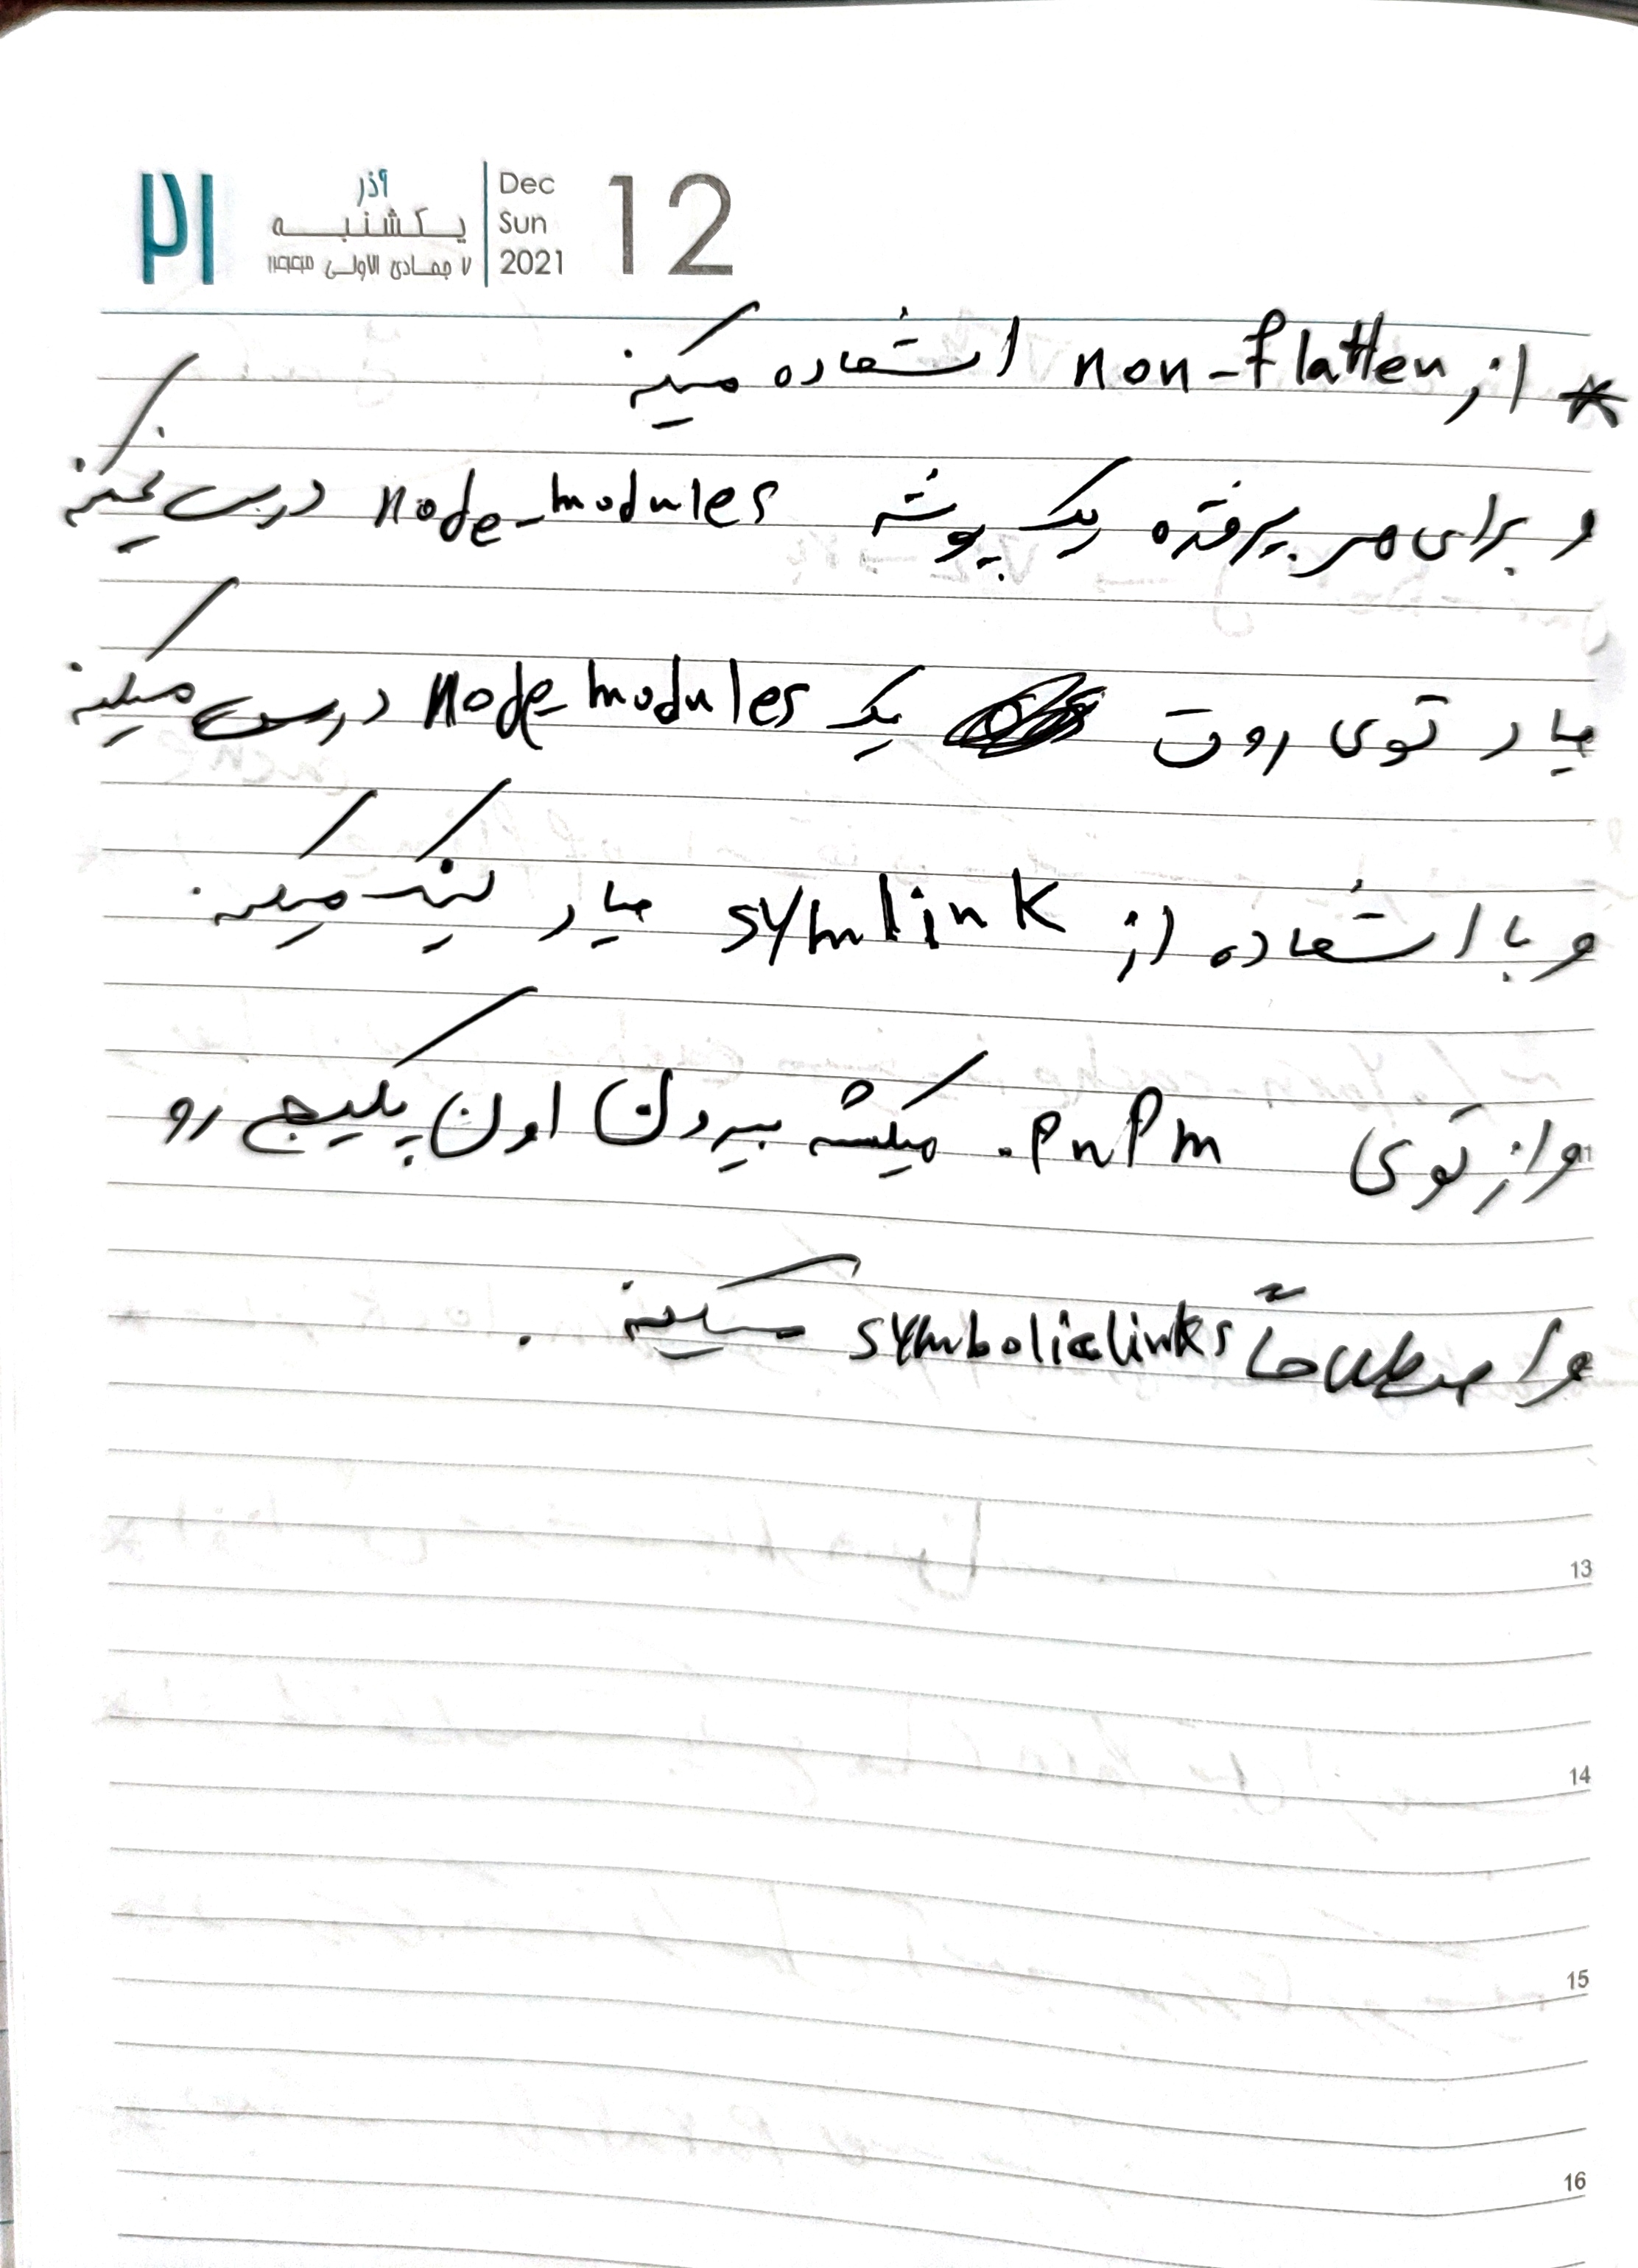 ۲۱
آذر
یکشنبه
۷ جمادی الاولی ۱۴۴۳
Dec
Sun
2021
12
* از non-flatten استفاده میکنه.
و برای هر پروژه یک پوشه node_modules درست نمیکنه
میاد توی روت یک node_modules درست میکنه
و با استفاده از symlink میاد لینک میکنه.
و از توی .pnpm میکشه بیرون اون پکیج رو
11
و اصطلاحاً symboliclinks میکنه.
13
14
15
16